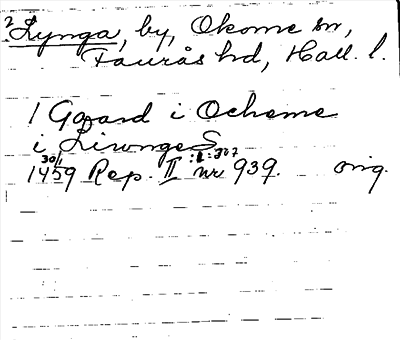 2 Lynga, by, Okome sn,
Faurås hd, Hall. l.
1 Gaard i Ocheme
i Liwnge S
30/1 :1:307
1459 Rep. II nr 939. orig.